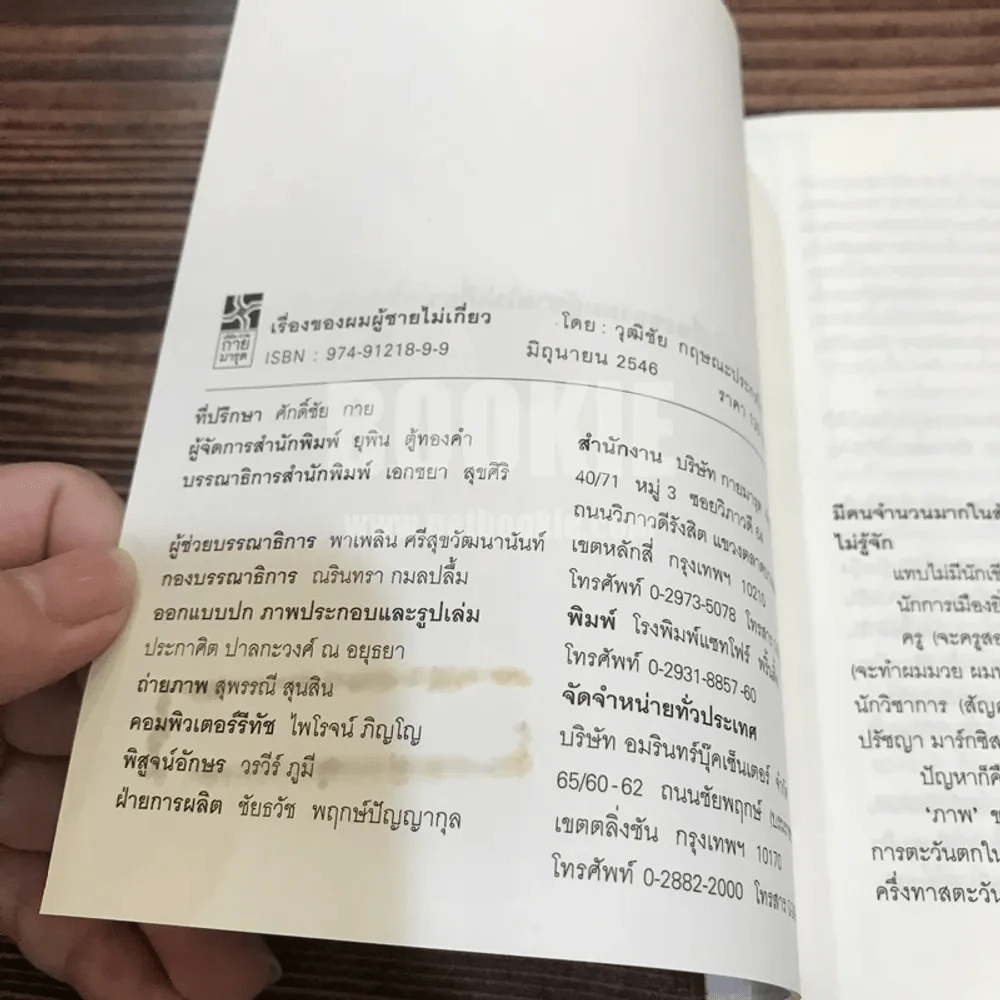 เรื่องของผมผู้ชายไม่เกี่ยว
ISBN : 974-91218-9-9
โดย : วุฒิชัย
มิถุนายน 2546
ราคา
กายมารุต
BOOKIE
ที่ปรึกษา ศักดิ์ชัย กาย
ผู้จัดการสำนักพิมพ์ ยุพิน ตู้ทองคำ
บรรณาธิการสำนักพิมพ์ เอกชยา สุขศิริ
ผู้ช่วยบรรณาธิการ พาเพลิน ศรีสุขวัฒนานันท์
กองบรรณาธิการ ณรินทรา กมลปลื้ม
ออกแบบปก ภาพประกอบและรูปเล่ม
ประกาศิต ปาลกะวงศ์ ณ อยุธยา
ถ่ายภาพ สุพรรณี สุนสิน
คอมพิวเตอร์รีทัช ไพโรจน์ ภิญโญ
พิสูจน์อักษร วรวีร์ ภูมี
ฝ่ายการผลิต ชัยธวัช พฤกษ์ปัญญากุล
สำนักงาน บริษัท กายมารุต
40/71 หมู่ 3 ซอยวิภาวดี 64
ถนนวิภาวดีรังสิต แขวง
เขตหลักสี่ กรุงเทพฯ 10210
โทรศัพท์ 0-2973-5078 โทรสาร
พิมพ์ โรงพิมพ์แซทโฟร์
โทรศัพท์ 0-2931-8857-60
จัดจำหน่ายทั่วประเทศ
บริษัท อมรินทร์บุ๊คเซ็นเตอร์
65/60-62 ถนนชัยพฤกษ์
เขตตลิ่งชัน กรุงเทพฯ 10170
โทรศัพท์ 0-2882-2000 โทรสาร
มีคนจำนวนมากใน
ไม่รู้จัก
แทบไม่มี
นักการเมือง
ครู
(จะทำผมมวย
นักวิชาการ
ปรัชญา
ปัญหาก็
'ภาพ'
การตะวันตกใน
ครึ่งทาส